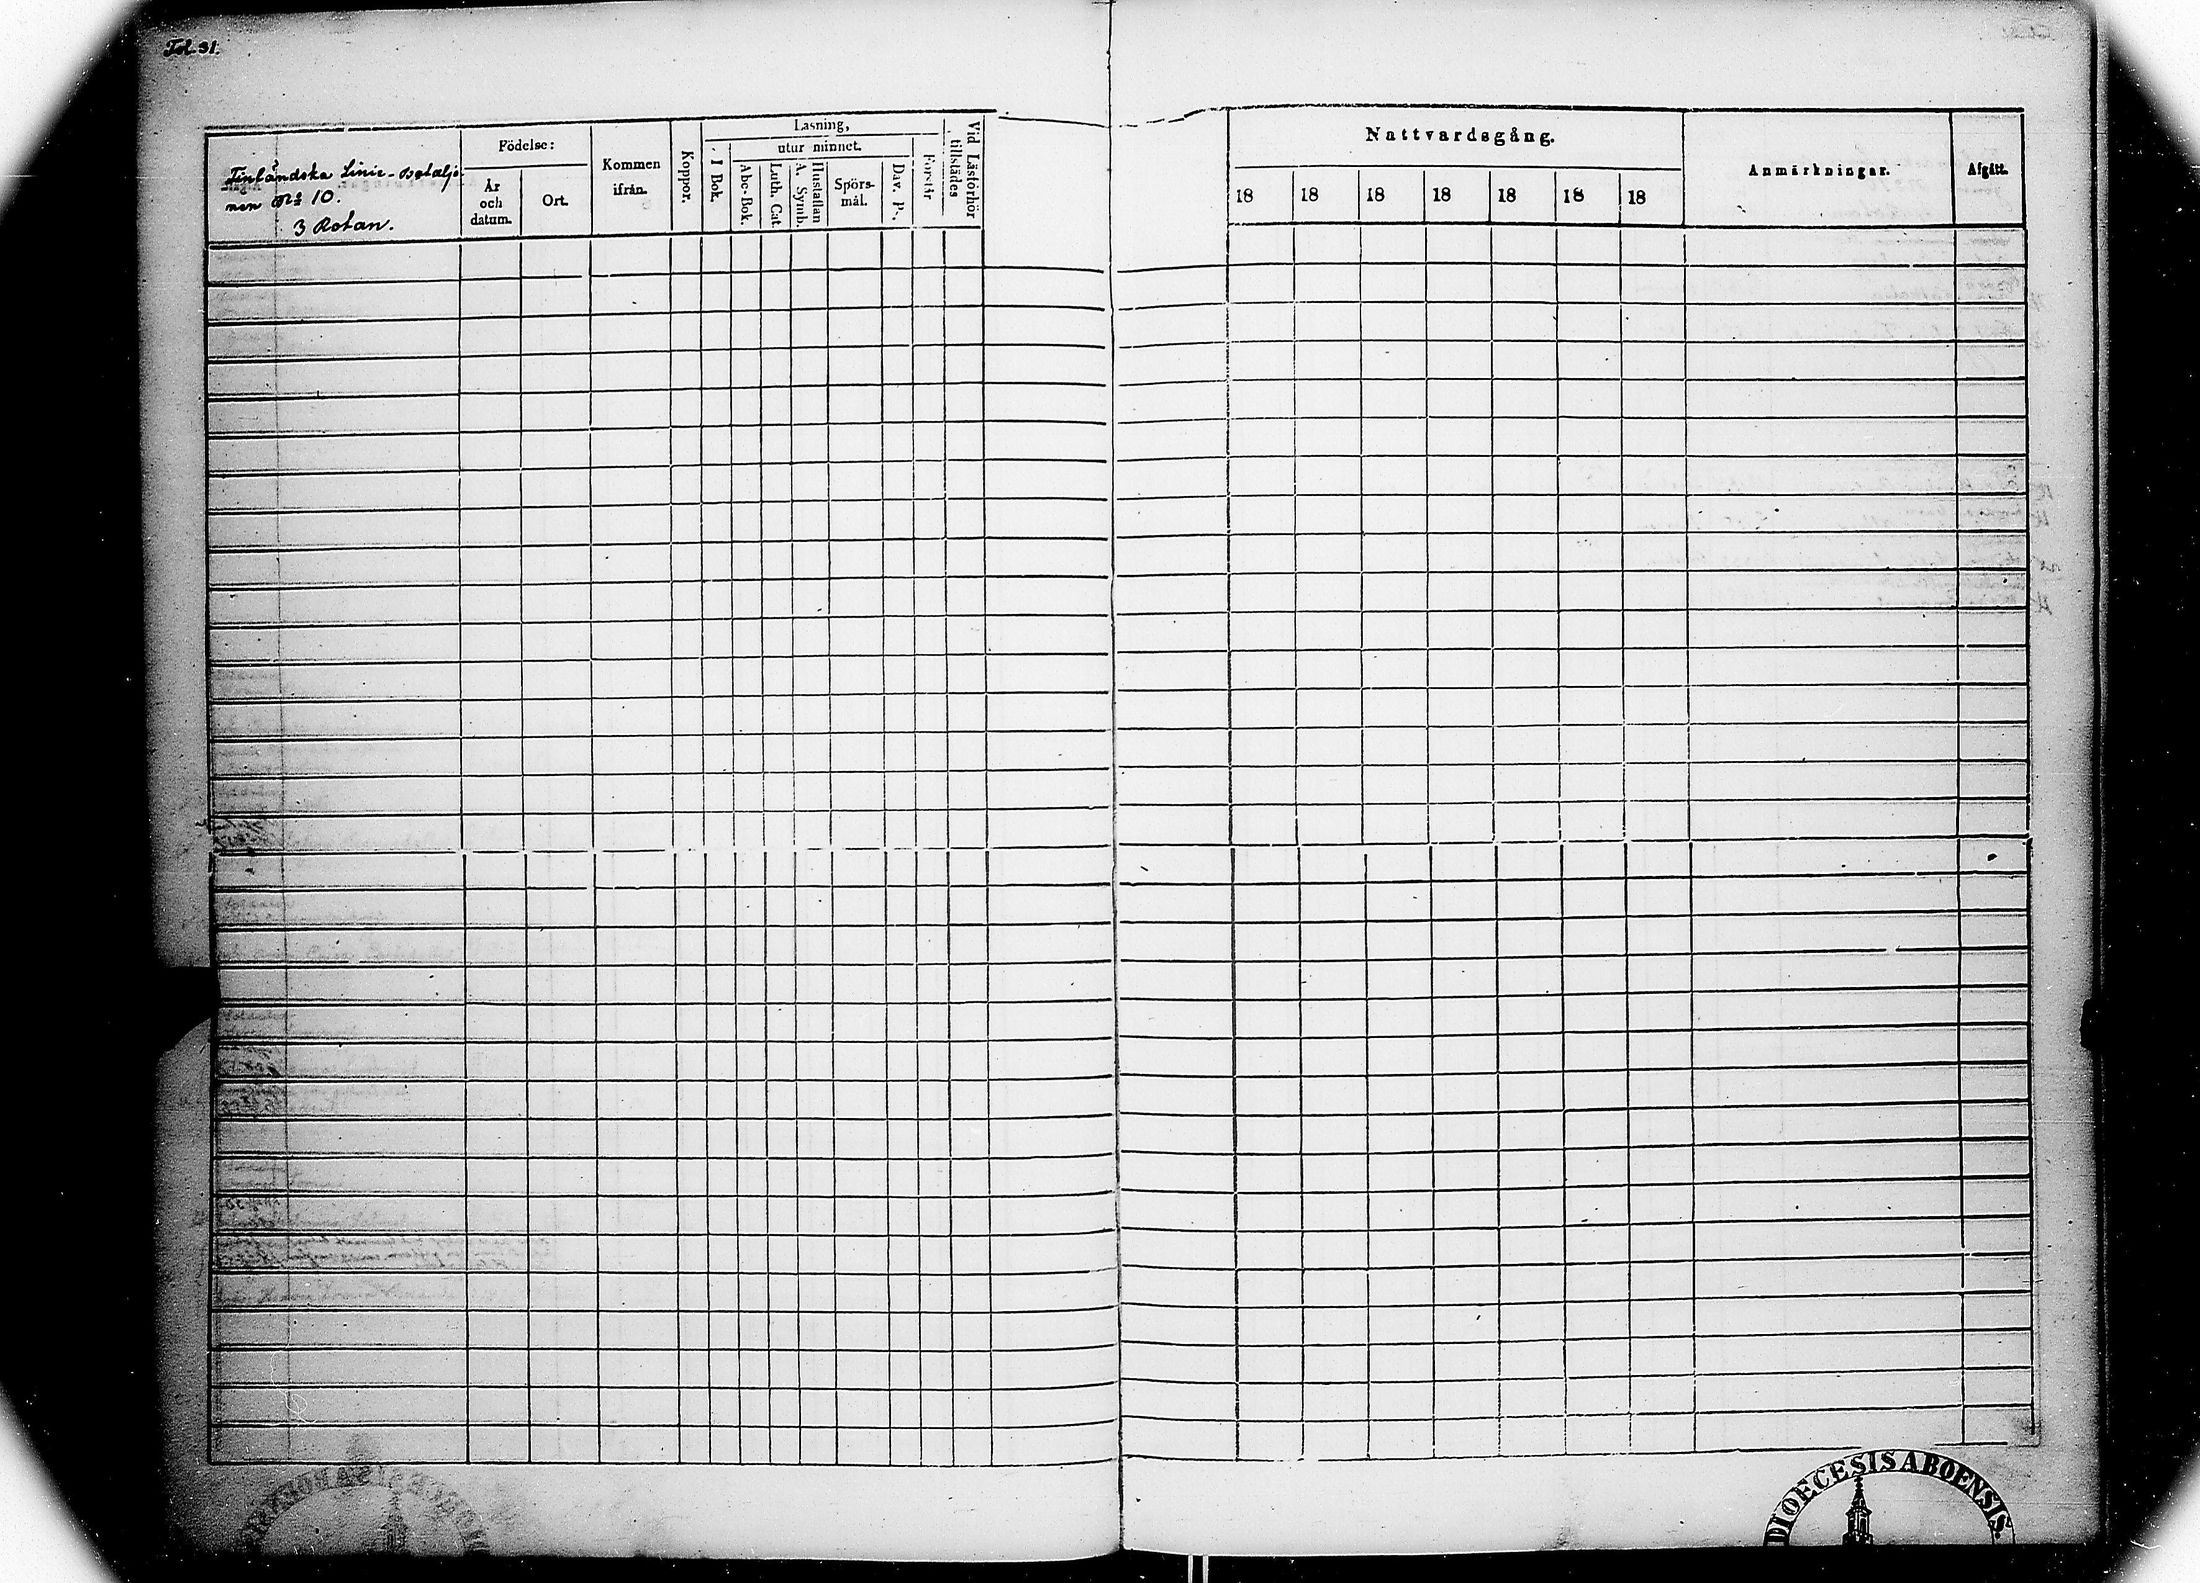 Fol. 31.
Finländska Linie-Bataljo-
nen № 10.
3 Rotan.
Födelse:
År
och
datum.
Ort.
Kommen
ifrån.
Koppor.
Läsning,
utur minnet.
I Bok.
Abc-Bok.
Luth. Cat.
Hustaflan
A. Symb.
Spörs-
mål.
Dav. P.
Förstår
Vid Läsförhör
tillstädes
Nattvardsgång.
18 18 18 18 18 18 18
Anmärkningar.
Afgått.
DIOECESIS ABOENSIS